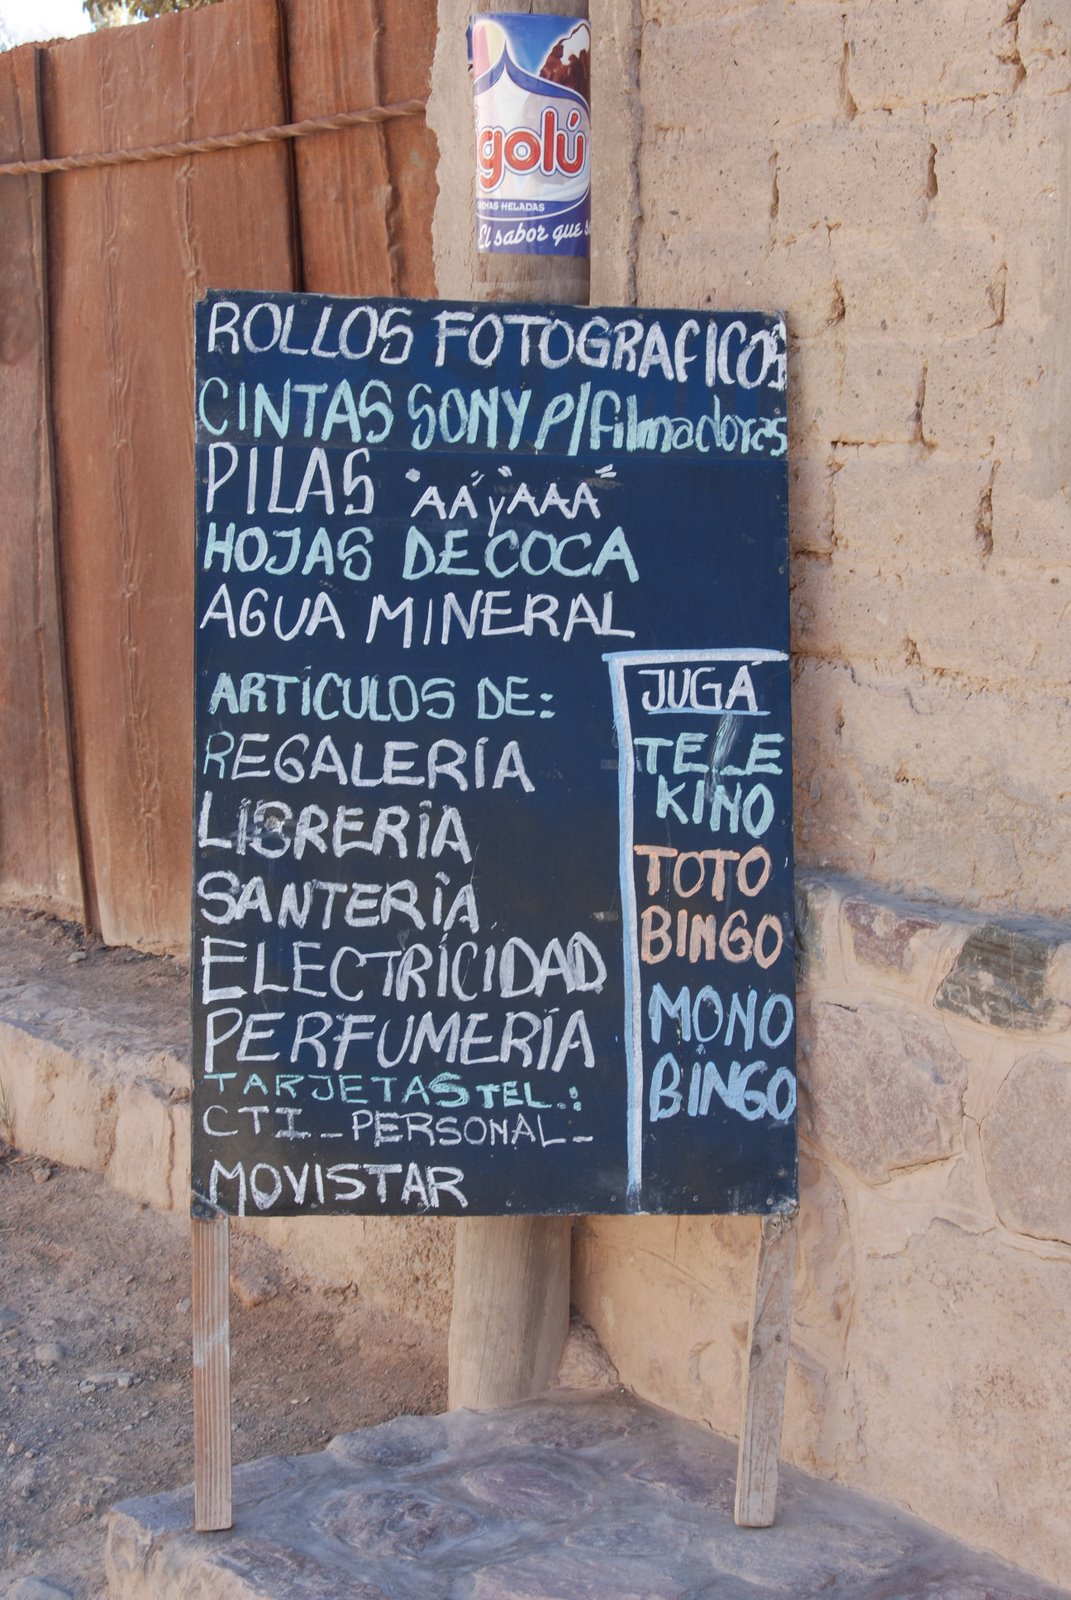 golú
HELADAS
El sabor que
ROLLOS FOTOGRAFICOS
CINTAS SONY P/filmadoras
PILAS "AA" y "AAA"
HOJAS DE COCA
AGUA MINERAL
ARTÍCULOS DE:
REGALERÍA
LIBRERÍA
SANTERÍA
ELECTRÍCIDAD
PERFUMERÍA
TARJETAS TEL.:
CTI_PERSONAL_
MOVISTAR
JUGÁ
TELE
KINO
TOTO
BINGO
MONO
BINGO